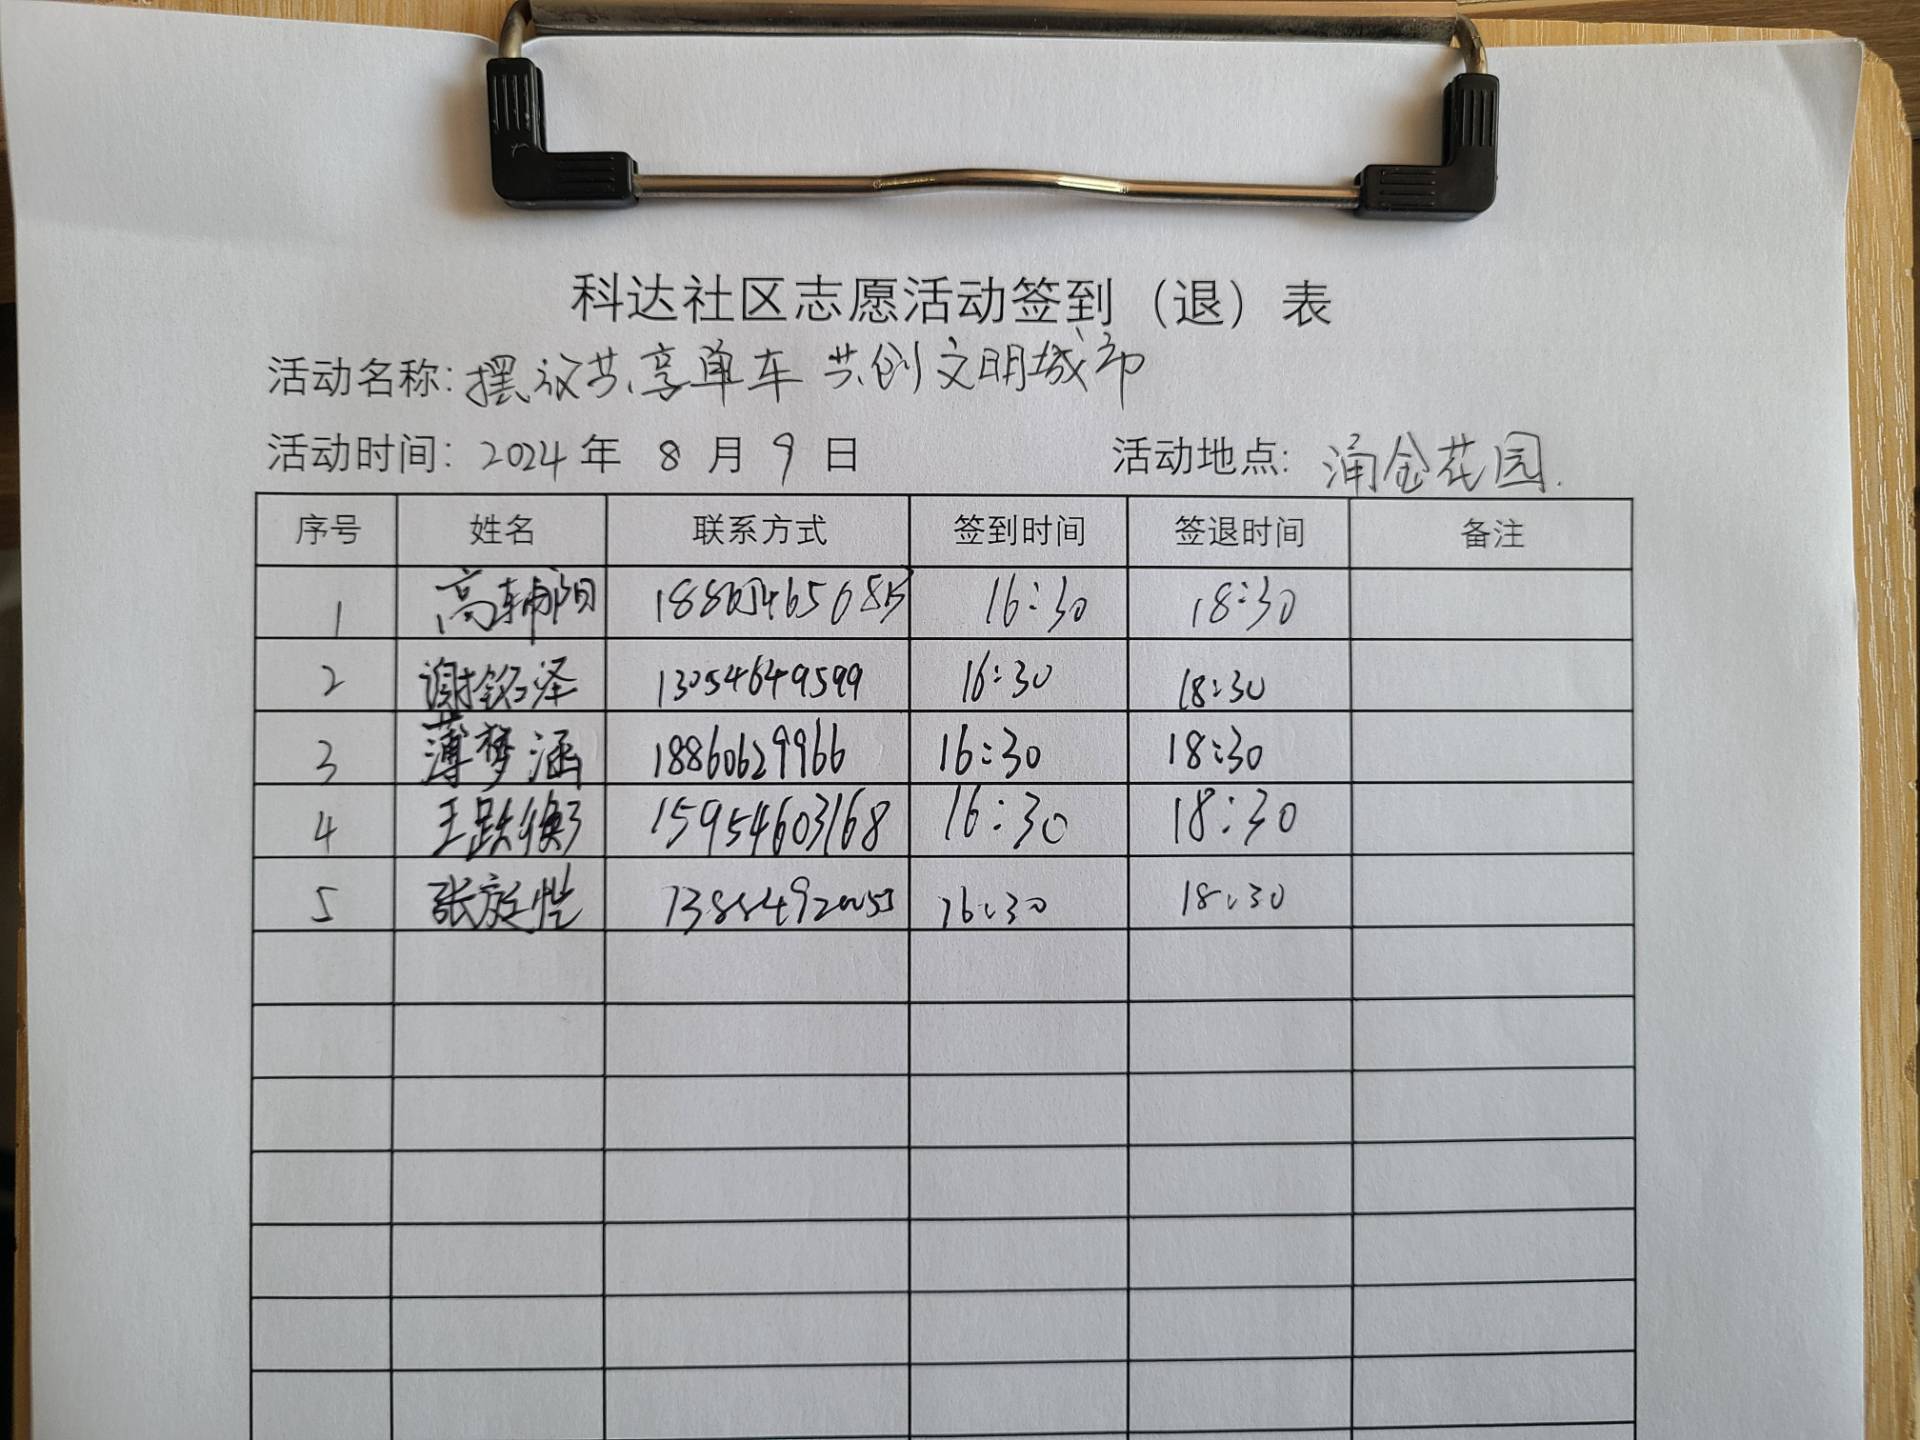 科达社区志愿活动签到（退）表
活动名称：摆放共享单车 共创文明城市
活动时间：2024年 8 月 9 日 活动地点：涌金花园.
序号 姓名 联系方式 签到时间 签退时间 备注
1 高辅阳 16:30 18:30
2 谢铭泽 13054649599 16:30 18:30
3 薄梦涵 18860629966 16:30 18:30
4 王 15954603168 16:30 18:30
5 张庭恺 16:30 18:30